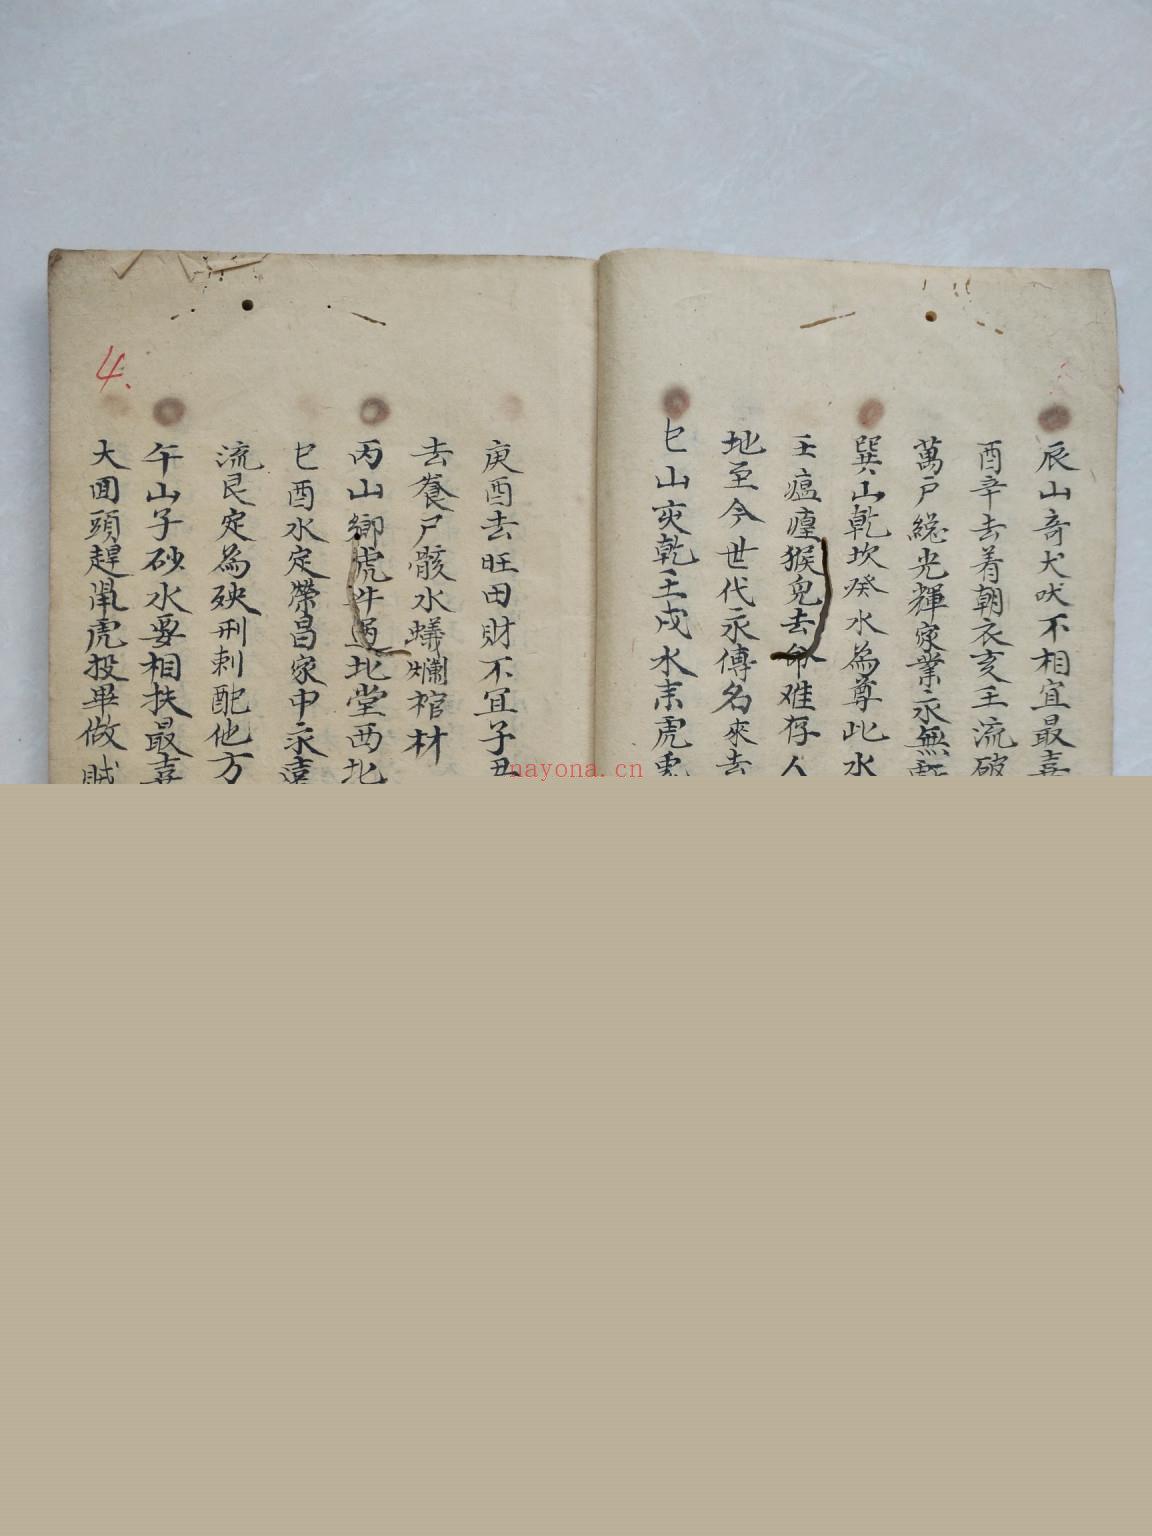 辰山奇犬吠不相宜最喜
酉辛去着朝衣亥壬流破
萬戶総光輝家業永無
巽山乾坎癸水為尊此水
壬瘟瘽猴兒去命难存人
地至今世代永傳名來去
巳山乾壬戌水来虎兎
庚酉去旺田財不宜子丑
去養尸骸水蟻爛棺材
丙山鄉虎斗過北堂西北
巳酉水定榮昌家中永遠
流艮定為殃刑刺配他方
午山子砂水要相扶最喜
大囬頭趕鼠虎投畢做賊
4.
nayona.cn